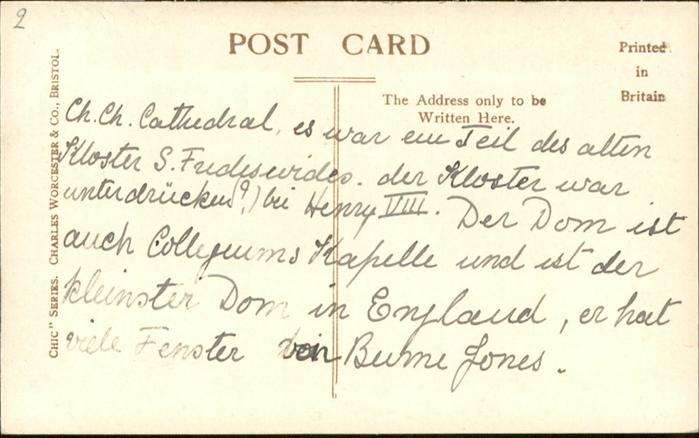 2
POST CARD
Printed
in
Britain
The Address only to be
Written Here.
CHIC" SERIES. CHARLES WORCESTER & CO., BRISTOL.
Ch. Ch. Cathedral, es war ein Teil des alten
Kloster S. Frideswides. der Kloster war
unterdrücken(?) bei Henry VIII. Der Dom ist
auch Collegiums Kapelle und ist der
kleinster Dom in England, er hat
viele Fenster von Burne Jones.